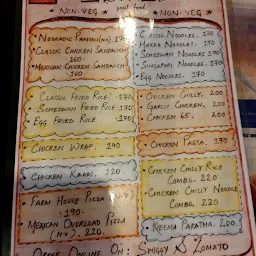 NON-VEG
NON-VEG
NOMADIC PANINI (NV) 190
CLASSIC CHICKEN SANDWICH
160
MEXICAN CHICKEN SANDWICH
160
CLASSIC NOODLES. 190
HAKKA NOODLES. 190
SCHEZWAN NOODLES 190
SINGAPORE NOODLES. 190
EGG NOODLES. 190
CLASSIC FRIED RICE. 190
SCHEZWAN FRIED RICE 190
EGG FRIED RICE. 190
CHICKEN CHILLY. 200
GARLIC CHICKEN. 200
CHICKEN 65. 200
CHICKEN WRAP. 190
CHICKEN PASTA. 190
CHICKEN KAADI. 220
CHICKEN CHILLY RICE
COMBO. 220
CHICKEN CHILLY NOODLE
COMBO. 220
FARM HOUSE PIZZA (NV)
190.
MEXICAN OVERLOAD PIZZA
(NV), 220.
KEEMA PARATHA. 200
ORDER ONLINE ON: SWIGGY & ZOMATO